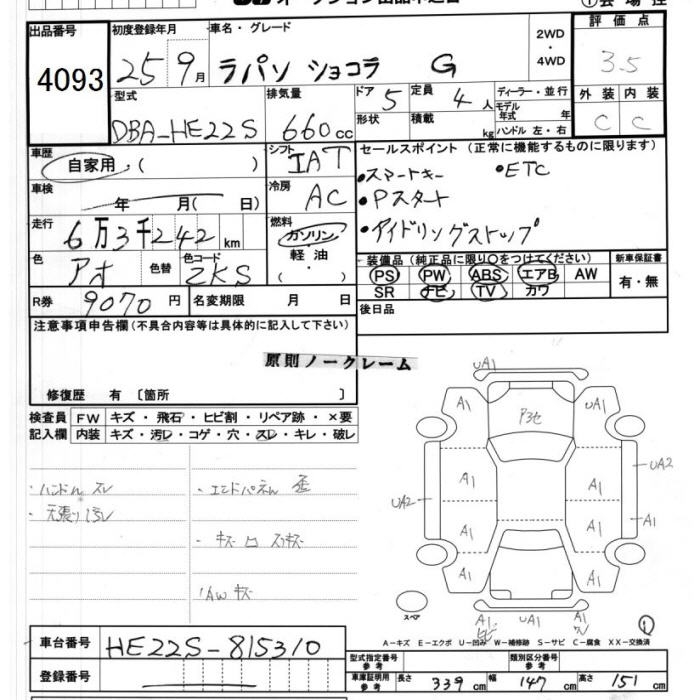 出品番号
4093
初度登録年月
25 9月
車名・グレード
ラパン ショコラ G
2WD
・
4WD
評価点
3.5
型式
DBA-HE22S
排気量
660cc
ドア 5
定員 4人
形状
積載 kg
ディーラー・並行
モデル年式 年
ハンドル 左・右
外装 内装
C C
車歴
自家用・( )
シフト
IAT
セールスポイント (正常に機能するものに限ります)
・スマートキー ・ETC
・Pスタート
・アイドリングストップ
車検
年 月( 日)
冷房
AC
走行
6万3千242km
燃料
ガソリン
軽油
・
( )
色
アオ
色替
色コード
ZKS
装備品 (純正品に限り○をつけてください)
新車保証書
PS PW ABS エアB AW
SR ナビ TV カワ
有・無
R券 9070円
名変期限 月 日
後日品
注意事項申告欄(不具合内容等は具体的に記入して下さい)
原則ノークレーム
修復歴 有〔箇所 〕
検査員 FW キズ・飛石・ヒビ割・リペア跡・×要
記入欄 内装 キズ・汚レ・コゲ・穴・スレ・キレ・破レ
・ハンドルスレ
・天張り汚レ
・エンドパネル 歪
・キズ ロ スリキズ
1AW キズ
UA1
A1 UA1
P3セ
A1 A1
UA2
UA2
A1 A1 A1
A1 A1
スペア
A1 UA1 A1
①
A-キズ E-エクボ U-凹み W-補修跡 S-サビ C-腐食 XX-交換済
車台番号 HE22S-815310
登録番号
型式指定番号
参考
類別区分番号
参考
車庫証明用
参考
長さ 339cm 幅 147cm 高さ 151cm